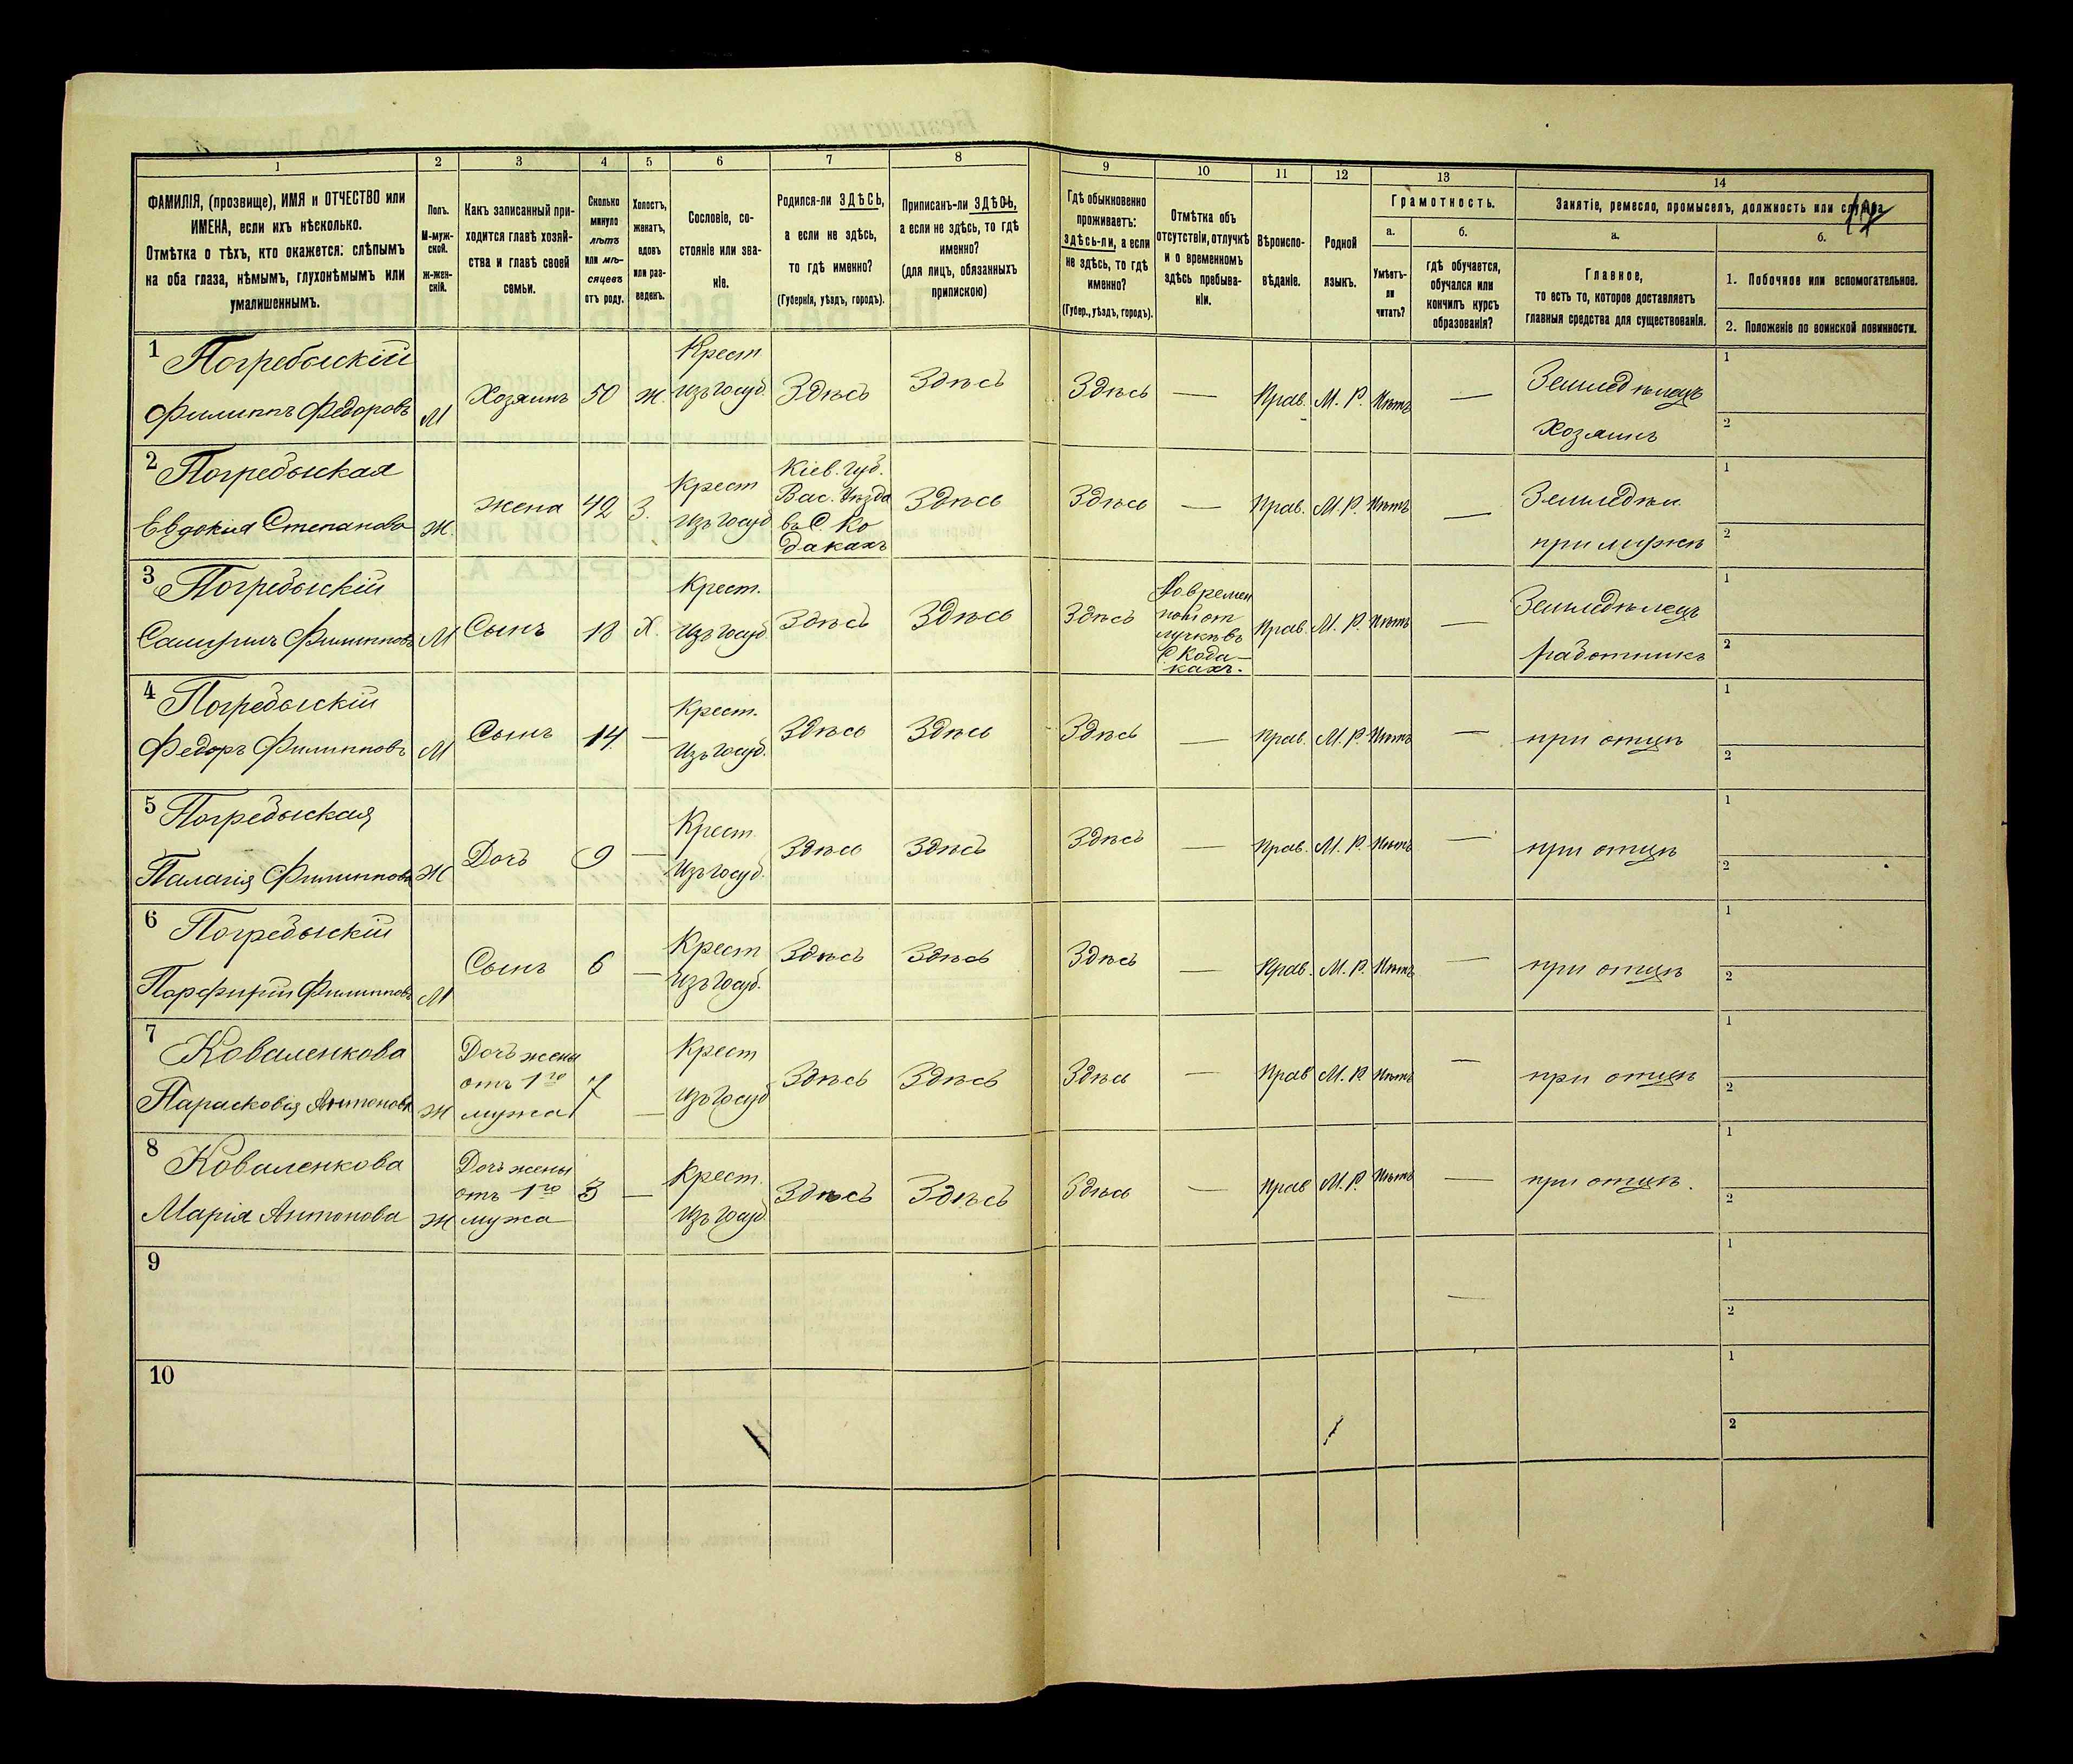 1 2 3 4 5 6 7 8 9 10 11 12 13 14
ФАМИЛІЯ, (прозвище), ИМЯ и ОТЧЕСТВО или
ИМЕНА, если ихъ нѣсколько.
Отмѣтка о тѣхъ, кто окажется: слѣпымъ
на оба глаза, нѣмымъ, глухонѣмымъ или
умалишеннымъ.
Полъ.
М-муж-
ской.
ж-жен-
скій.
Какъ записанный при-
ходится главѣ хозяй-
ства и главѣ своей
семьи.
Сколько
минуло
лѣтъ
или мѣ-
сяцевъ
отъ роду.
Холостъ,
женатъ,
вдовъ
или раз-
веденъ.
Сословіе, со-
стояніе или зва-
ніе.
Родился-ли ЗДѢСЬ,
а если не здѣсь,
то гдѣ именно?
(Губернія, уѣздъ, городъ).
Приписанъ-ли ЗДѢСЬ,
а если не здѣсь, то гдѣ
именно?
(для лицъ, обязанныхъ
припискою)
Гдѣ обыкновенно
проживаетъ:
здѣсь-ли, а если
не здѣсь, то гдѣ
именно?
(Губер., уѣздъ, городъ).
Отмѣтка объ
отсутствіи, отлучкѣ
и о временномъ
здѣсь пребыва-
ніи.
Вѣроиспо-
вѣданіе.
Родной
языкъ.
Грамотность.
а.
Умѣетъ-
ли
читать?
б.
гдѣ обучается,
обучался или
кончилъ курсъ
образованія?
Занятіе, ремесло, промыселъ, должность или служба
а.
Главное,
то есть то, которое доставляетъ
главныя средства для существованія.
б.
1. Побочное или вспомогательное.
2. Положеніе по воинской повинности.
1 Погребыскій
Филиппъ Федоровъ
М
Хозяинъ
50
Ж.
Крест
Изъ госуд.
Здѣсь
Здѣсь
Здѣсь
—
Прав.
М. Р.
Нѣтъ
—
Земледѣлецъ
Хозяинъ
1
2
2 Погребыская
Евдокия Степанова
Ж.
Жена
42
З.
Крест
Изъ госуд
Кіев. губ.
Вас. Уѣзда
въ С. Ко
дакахъ
Здѣсь
Здѣсь
—
Прав.
М. Р.
Нѣтъ
—
Земледѣл.
при мужѣ
1
2
3 Погребыскій
Филипповъ
М
Сынъ
18
Х.
Крест.
Изъ госуд
Здѣсь
Здѣсь
Здѣсь
Во времен
ной от
лучкѣ въ
С. Кода-
кахъ.
Прав.
М. Р.
Нѣтъ
—
Земледѣлецъ
работникъ
1
2
4 Погребыскій
Федоръ Филипповъ
М
Сынъ
14
—
Крест.
Изъ госуд.
Здѣсь
Здѣсь
Здѣсь
—
Прав.
М. Р.
Нѣтъ
—
при отцѣ
1
2
5 Погребыская
Палагія Филиппова
Ж
Дочь
9
—
Крест
Изъ госуд.
Здѣсь
Здѣсь
Здѣсь
—
Прав.
М. Р.
Нѣтъ
—
при отцѣ
1
2
6 Погребыскій
Парфирій Филипповъ
М
Сынъ
6
—
Крест
Изъ госуд.
Здѣсь
Здѣсь
Здѣсь
—
Прав.
М. Р.
Нѣтъ
—
при отцѣ
1
2
7 Коваленкова
Парасковія Антонова
Ж
Дочь жены
отъ 1го
мужа
7
—
Крест
Изъ госуд
Здѣсь
Здѣсь
Здѣсь
—
Прав
М. Р.
Нѣтъ
—
при отцѣ
1
2
8 Коваленкова
Марія Антонова
Ж
Дочь жены
отъ 1го
мужа
3
—
Крест.
Изъ госуд
Здѣсь
Здѣсь
Здѣсь
—
Прав
М. Р.
Нѣтъ
—
при отцѣ.
1
2
9
—
1
2
10
1
2